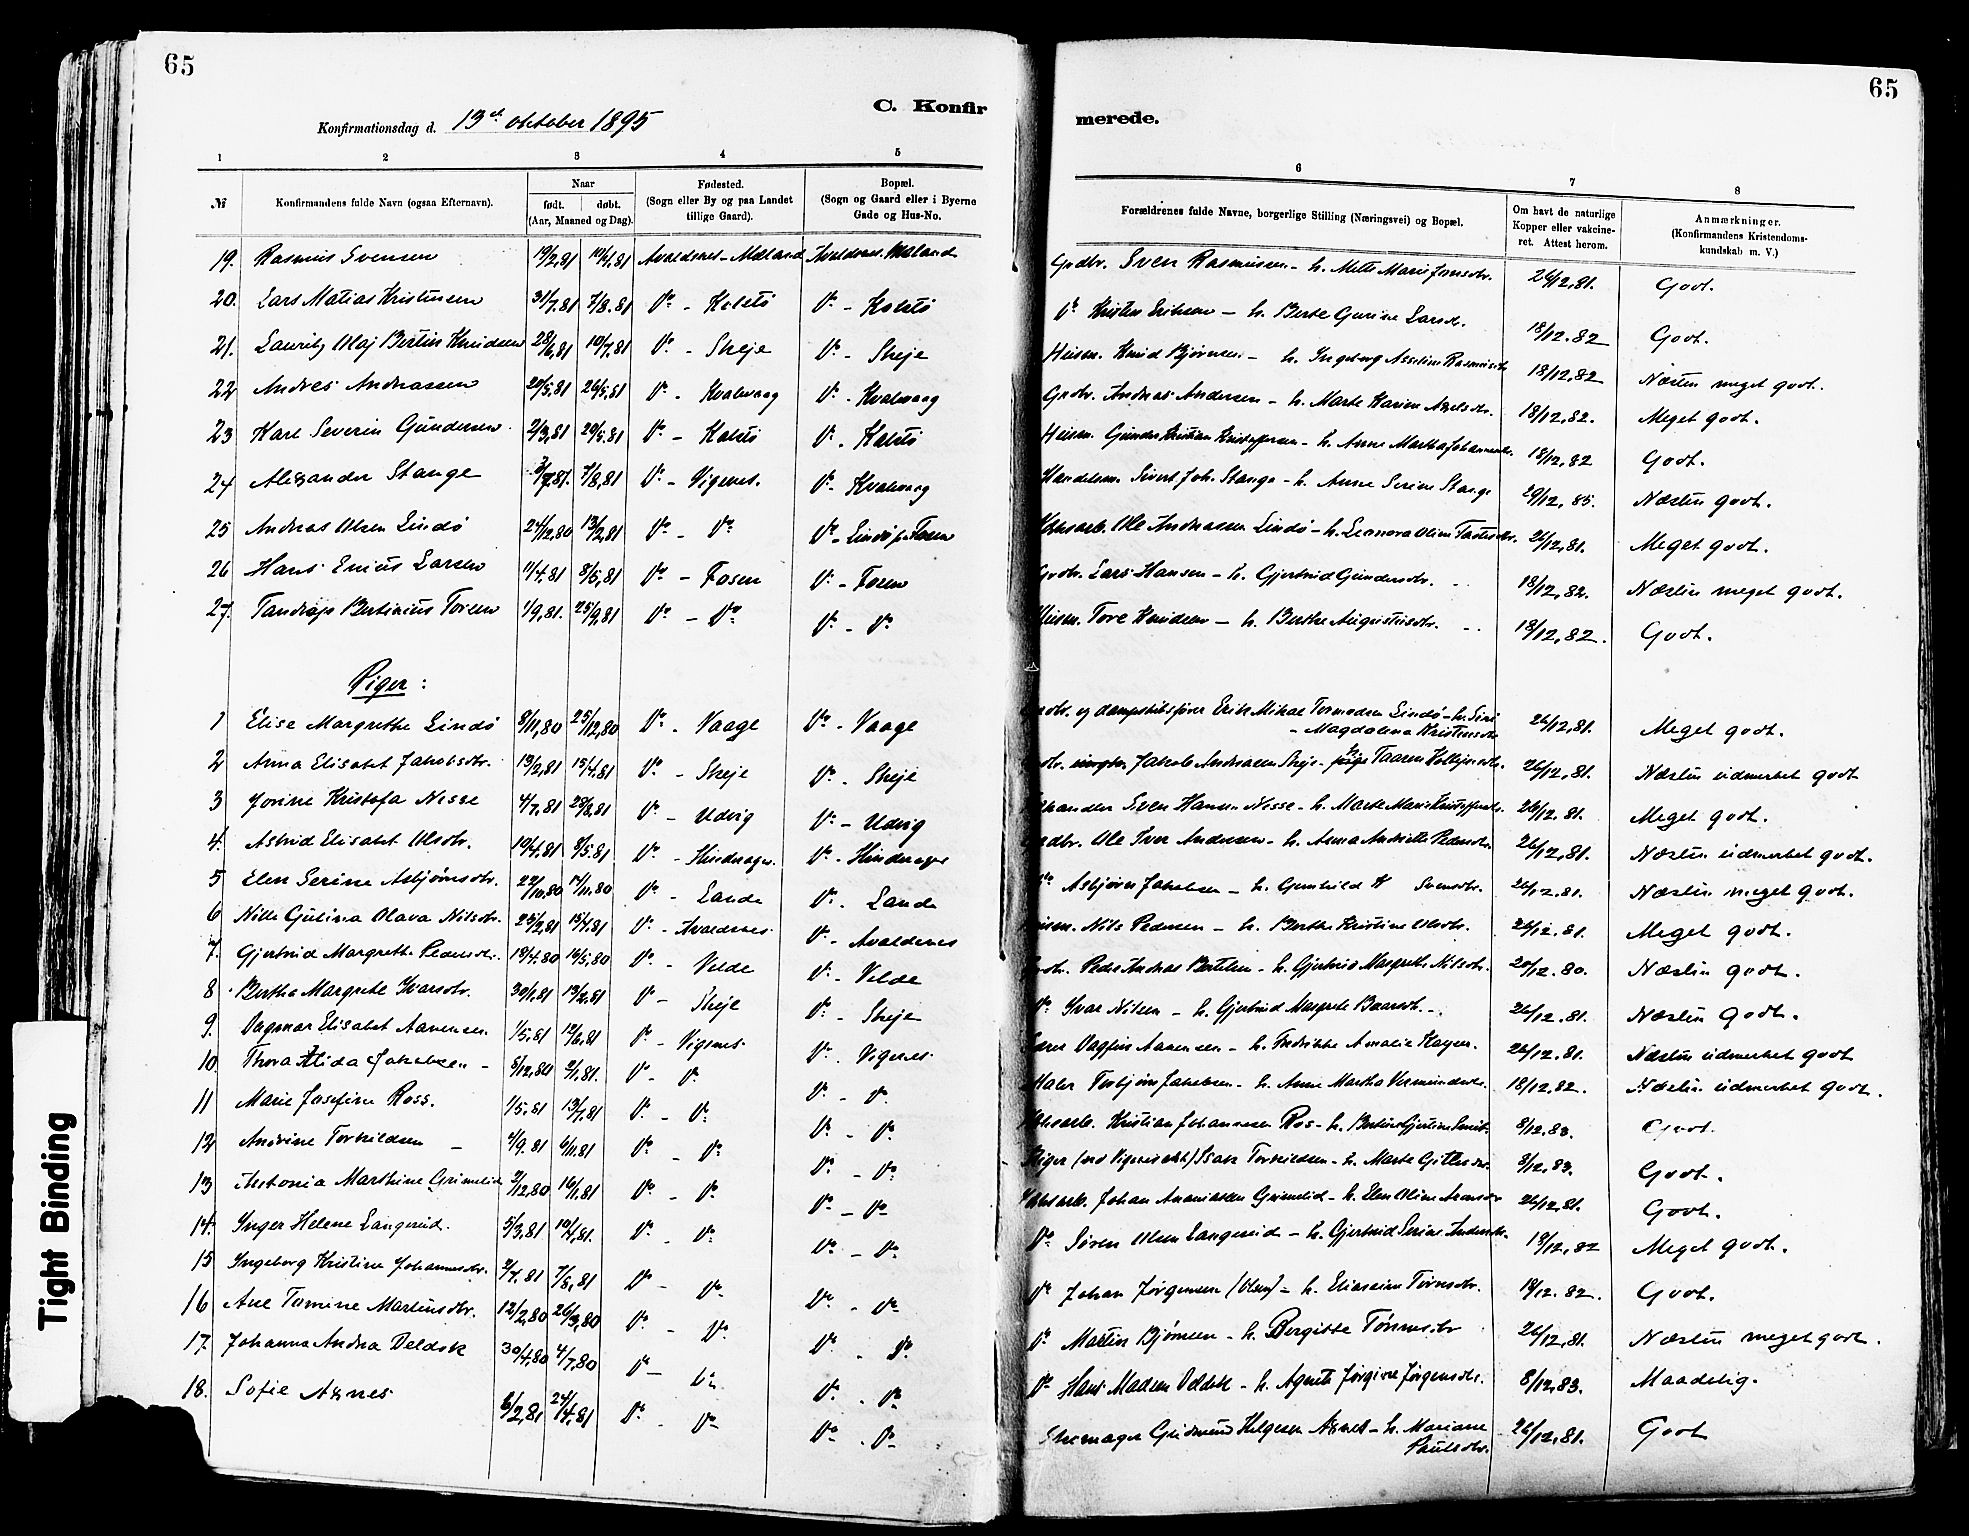 65
65
C. Konfir
merede.
Konfirmationsdag d. 13de oktober 1895
1 2 3 4 5 6 7 8
№ Konfirmandens fulde Navn (ogsaa Efternavn). Naar født. døbt. (Aar, Maaned og Dag). Fødested. (Sogn eller By og paa Landet tillige Gaard). Bopæl. (Sogn og Gaard eller i Byerne Gade og Hus-No. Forældrenes fulde Navne, borgerlige Stilling (Næringsvei) og Bopæl. Om havt de naturlige Kopper eller vakcineret. Attest herom. Anmærkninger. (Konfirmandens Kristendomskundskab m. V.)
19. Rasmus Svensen 19/2,81 10/4,81 Avaldsnes - Mæland Avaldsnes. Mæland Grdbr. Sven Rasmussen - h. Mette Marie Jonsdtr. 26/12,81. Godt.
20. Lars Matias Kristensen 31/7.81 7/8.81 Do - Kolstø Do - Kolstø Do Kristen Eriksen - h. Berte Gurine Larsdtr. 18/12.82 Godt.
21. Lauritz Olaj Bertius Knudsen 28/6,81 10/7,81 Do - Skeje Do - Skeje Heism. Knud Bjørnsen - h. Ingeborg Asseline Rasmusdtr 18/12,82 Næsten meget godt.
22 Andres Andreassen 20/5,81 26/5,81 Do - Kvalevaag Do - Kvalevaag Grdbr. Andreas Andersen - h. Marte Karine Axelsdtr. 18/12,82. Meget godt.
23 Karl Severin Gundersen 2/3,81 29/5.81 Do - Kolstø Do - Kolstø Heism. Gunder Kristian Kristoffersen - h. Anne Martha Johannesdtr. 18/12,82 Godt.
24 Alexander Stange 3/7,81. 7/8,81 Do - Vigsnes. Do - Kvalevaag Handelsm. Sivert Joh. Stange - h. Anne Serine Stange 29/12,85. Næsten godt.
25 Andreas Olsen Lindø 24/12,80 13/2,81 Do - Do Do - Lindø pr Fosen Ole Andreassen Lindø - h. Leonora Oline 26/12,81. Meget godt.
26 Hans Enius Larsen 11/4.81 8/5,81 Do - Fosen Do - Fosen Grdbr. Lars Hansen - h. Gjertrud Gundersdtr. 18/12,82. Næsten meget godt.
27. Tandrup Bertinius Toresen 1/9,81. 25/9,81 Do - Do Do - Do Heism. Tore Knudsen - h. Berthe Augustusdtr. 18/12,82. Godt.
Piger:
1 Elise Margrethe Lindø 8/11,80 25/12,80 Do - Vaage Do - Vaage og dampskibsfører Erik Mikal Tormodsen Lindø - h. Siri
- Magdalena Kristensdtr 26/12,81. Meget godt.
2 Anna Elisabet Jakobsdtr. 19/2,81 15/4.81 Do - Skeje Do - Skeje Jakob Andreasen Skeje - Taaren 26/12,81. Næsten udmerket godt
3 Jorine Kristofa Nesse 4/7,81 28/8,81 Do - Udvig Do - Udvig Sven Hansen Nesse - h. Marte Marie Kristoffersdtr. 26/12,81. Meget godt.
4. Astrid Elisabet Olsdtr. 10/4.81 8/5.81 Do - Hinderager. Do - Hinderager Grdbr. Ole Iver Andersen - h. Anna Andrette Pedersdtr. 26/12,81. Næsten udmerket godt.
5 Elen Serine Asbjørnsdtr. 22/10,80 14/11,80 Do - Lande Do - Lande Do Asbjørn Jakobsen - h. Gunhild K Svensdtr. 26/12.81. Næsten meget godt.
6 Nille Gulina Olava Nilsdtr. 25/2,81 15/4.81 Do - Avaldsnes Do - Avaldsnes Heism. Nils Pedersen - h. Berthe Kristine Olsdtr. 26/12.81. Meget godt.
7. Gjertrud Margrethe Pedersdtr. 19/4.80 16/5,80 Do - Velde Do - Velde Grdbr. Peder Andreas Bertelsen - h. Gjertrud Margrethe Nilsdtr. 20/12.80. Næsten godt.
8 Bertha Margrete Ivarsdtr. 30/1,81 13/2,81 Do - Skeje Do - Skeje Do Ivar Nilsen - h. Gjertrud Margrete Baarsdtr. 26/12,81. Næsten godt.
9. Dagmar Elisabet Aanensen 1/5,81 12/6,81 Do - Vigsnes Do - Vigsnes Lærer Dagfin Aanensen - h. Fredrikke Amalie Kayser. 26/12,81. Næsten udmerket godt
10 Thora Alida Jakobsen - 5/12,80 2/1,81. Do - Do Do - Do Maler Torbjørn Jakobsen - h. Anne Martha 18/12,82. Næsten udmerket godt.
11 Marie Josefine Ross. 1/5,81 13/7,81 Do - Do Do - Do Kristian Johannesen Ros - h. 8/12,83. Godt.
12 Andrine Torkildsen - 4/9.81 6/11.81 Do - Do Do - Do Stiger (ved Vigsnes) Isak Torkildsen - h. Marte 8/12.83. Godt.
13 Antonia Marthine Grimelid 2/12,80 16/1.81 Do - Do Do - Do Johan Ananiassen Grimelid - h. Elen Oline 26/12,81. Godt.
14. Inger Helene Langereid. 5/3,81 10/4,81. Do - Do Do - Do Do Søren Olsen Langereid - h. Gjertrud Serine Andersdtr. 18/12,82 Meget godt.
15 Ingeborg Kristine Johannesdtr. 2/7.81 7/8,81 Do - Do Do - Do Do Johan Jørgensen (Olsen) - h. 18/12.82. Godt.
16 Ane Tomine Martinsdtr. 12/2,80 26/3,80 Do - Do Do - Do Do Martin Bjørnsen - h. Bergitte Tønnesdtr 26/12,81. Næsten meget godt.
17. Johanna Andrea Deldok 30/4,80 4/7,80 Do - Do Do - Do Do Hans Madsen Deldok - h. Agnete Jørgine Jørgensdtr. 8/12,83. Maadelig.
18. Sofie Axnes 6/2,81 24/4,81 Do - Do Do - Do Skomager Gudmund Helgesen Axnes - h. Mariane
Paulsdtr. 26/12,81. Godt
Tight Binding